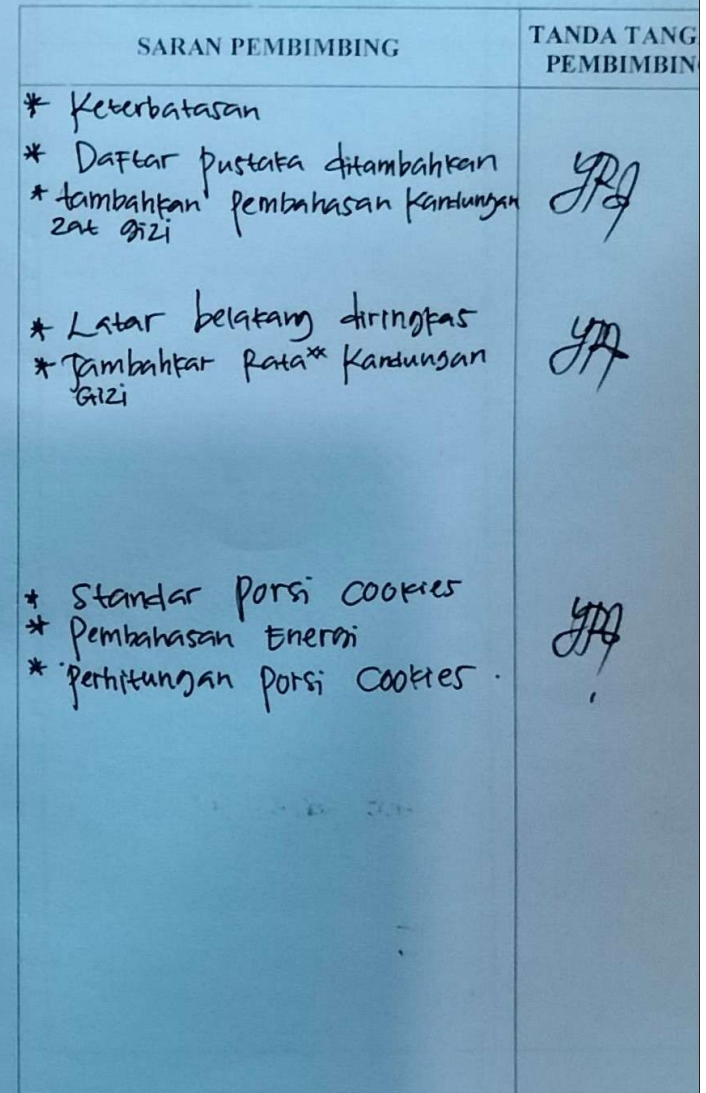 SARAN PEMBIMBING
TANDA TANG
PEMBIMBIN
* Keterbatasan
* Daftar pustaka ditambahkan
* tambahkan pembahasan kandungan
zat gizi
* Latar belakang diringkas
* Tambahkan Rata** kandungan
Gizi
* Standar porsi cookies
* Pembahasan Energi
* Perhitungan porsi cookies.